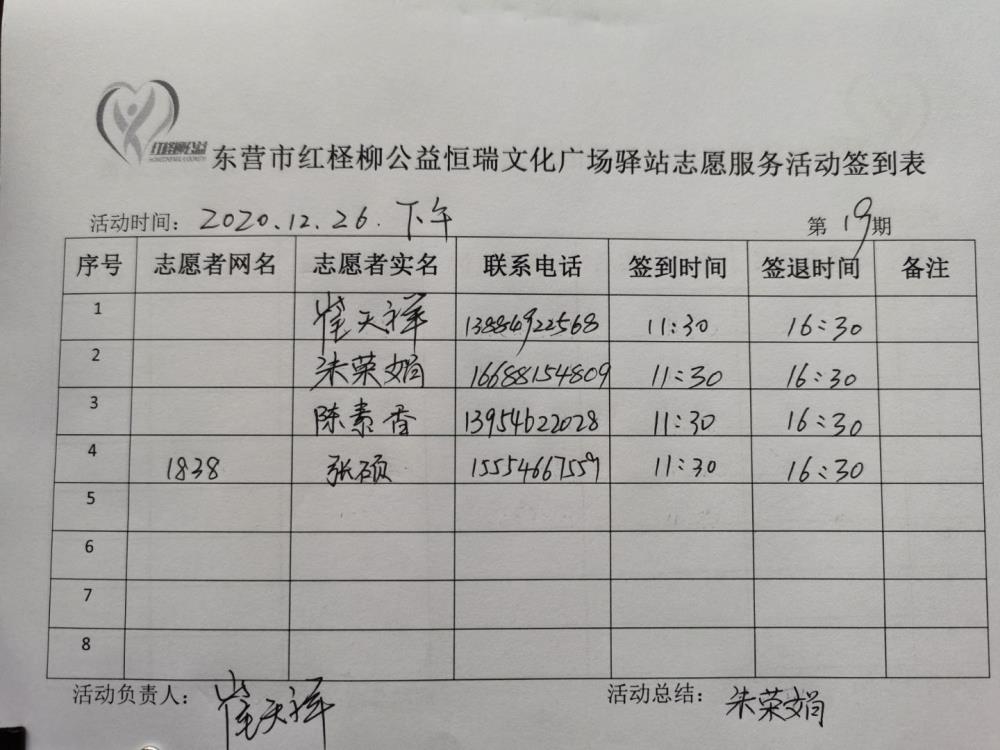 红柽柳公益
东营市红柽柳公益恒瑞文化广场驿站志愿服务活动签到表
活动时间: 2020.12.26.下午 第19期
序号 志愿者网名 志愿者实名 联系电话 签到时间 签退时间 备注
1 崔天祥 13884922568 11:30 16:30
2 朱荣娟 16688154809 11:30 16:30
3 陈素香 13954622028 11:30 16:30
4 1838 张硕 15554667559 11:30 16:30
5
6
7
8
活动负责人: 崔天祥 活动总结: 朱荣娟